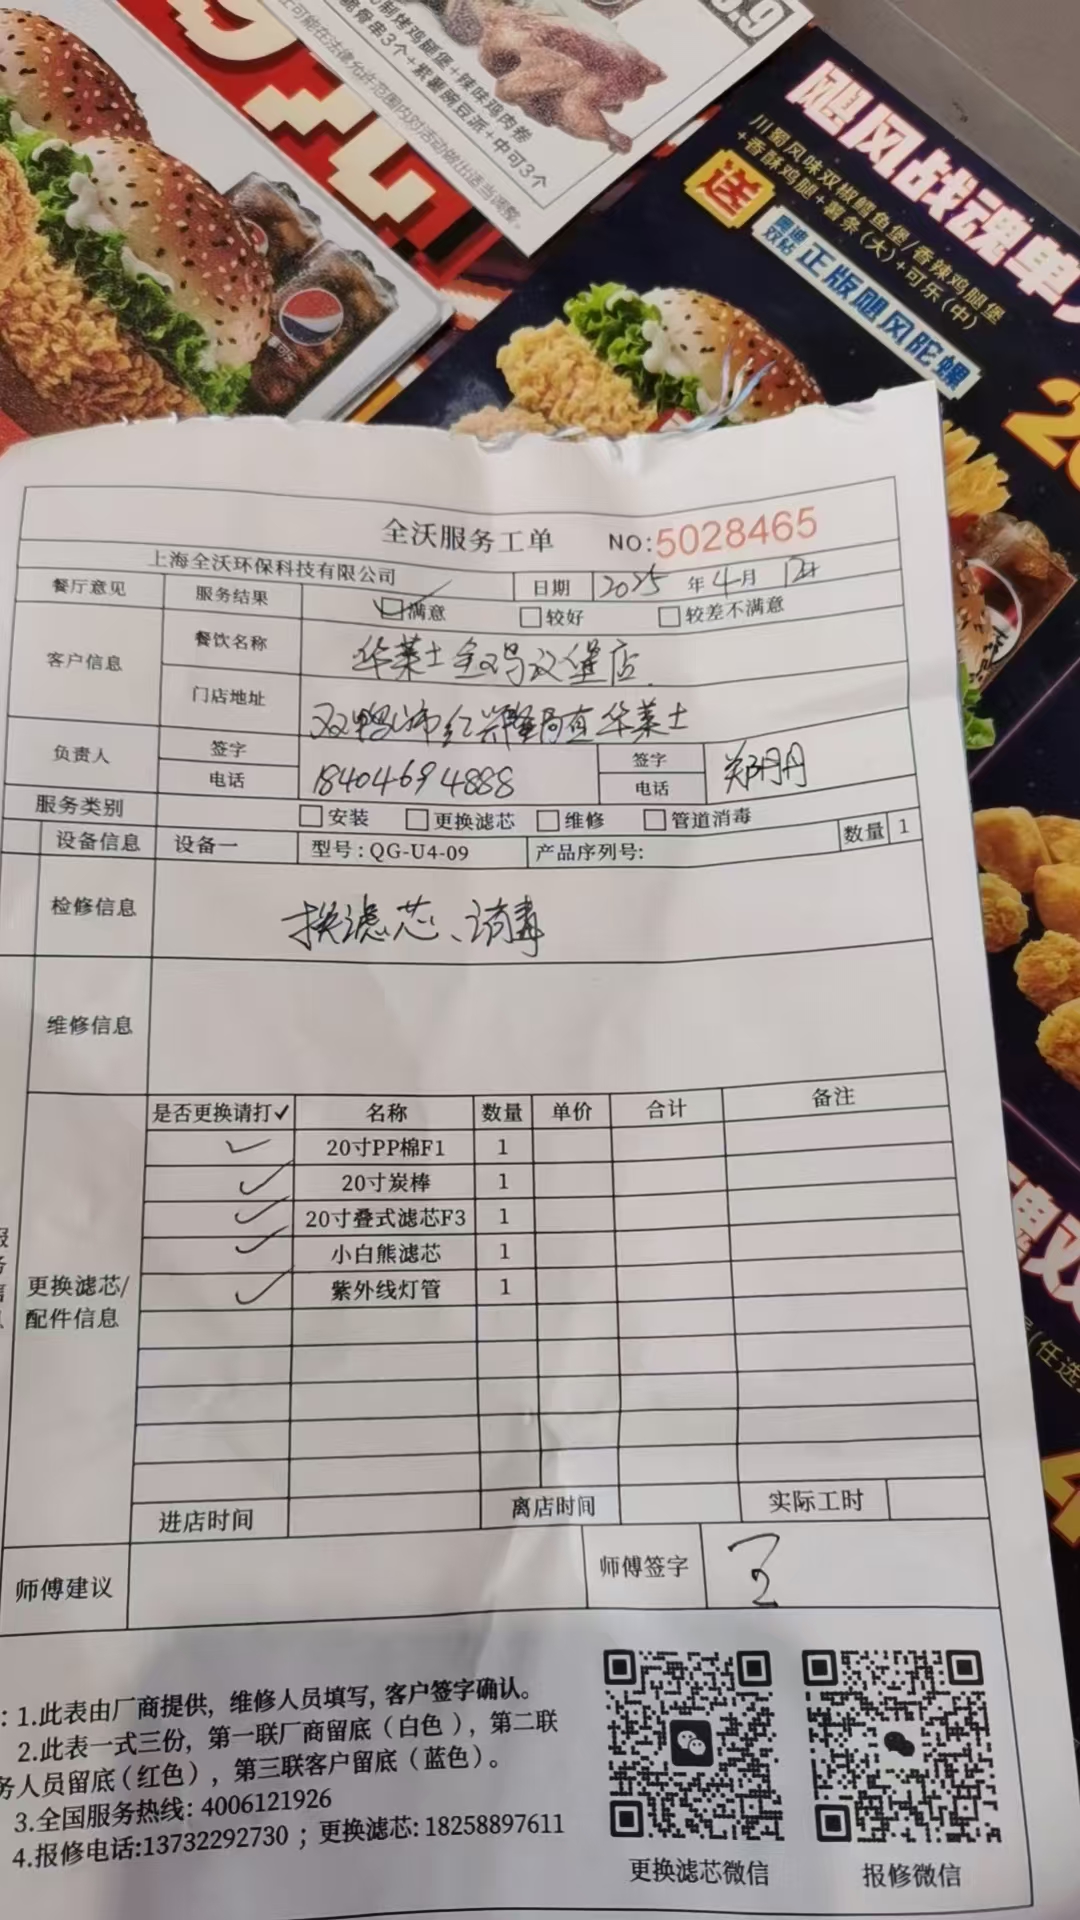 制烤鸡腿堡+辣味鸡肉卷
脆骨串3个+紫薯豌豆派+中可3个
可能在法律允许范围内对活动做出适当调整。
飓风战魂单
川蜀风味双椒鳕鱼堡/香辣鸡腿堡
+香酥鸡腿+薯条(大)+可乐(中)
送
正版飓风陀螺
全沃服务工单 NO:5028465
上海全沃环保科技有限公司 日期 2025 年 4 月
餐厅意见 服务结果 ☑满意 □较好 □较差不满意
客户信息 餐饮名称 华莱士全鸡汉堡店
门店地址 双鸭山市红兴隆局直华莱士
负责人 签字 签字 郑丹丹
电话 18404694888 电话
服务类别 □安装 □更换滤芯 □维修 □管道消毒
设备信息 设备一 型号:QG-U4-09 产品序列号: 数量 1
检修信息 换滤芯、消毒
维修信息
更换滤芯/配件信息
是否更换请打✓ 名称 数量 单价 合计 备注
✓ 20寸PP棉F1 1
✓ 20寸炭棒 1
✓ 20寸叠式滤芯F3 1
✓ 小白熊滤芯 1
✓ 紫外线灯管 1
进店时间 离店时间 实际工时
师傅建议 师傅签字
:1.此表由厂商提供,维修人员填写,客户签字确认。
2.此表一式三份,第一联厂商留底(白色),第二联
务人员留底(红色),第三联客户留底(蓝色)。
3.全国服务热线:4006121926
4.报修电话:13732292730;更换滤芯:18258897611
更换滤芯微信 报修微信
(任选